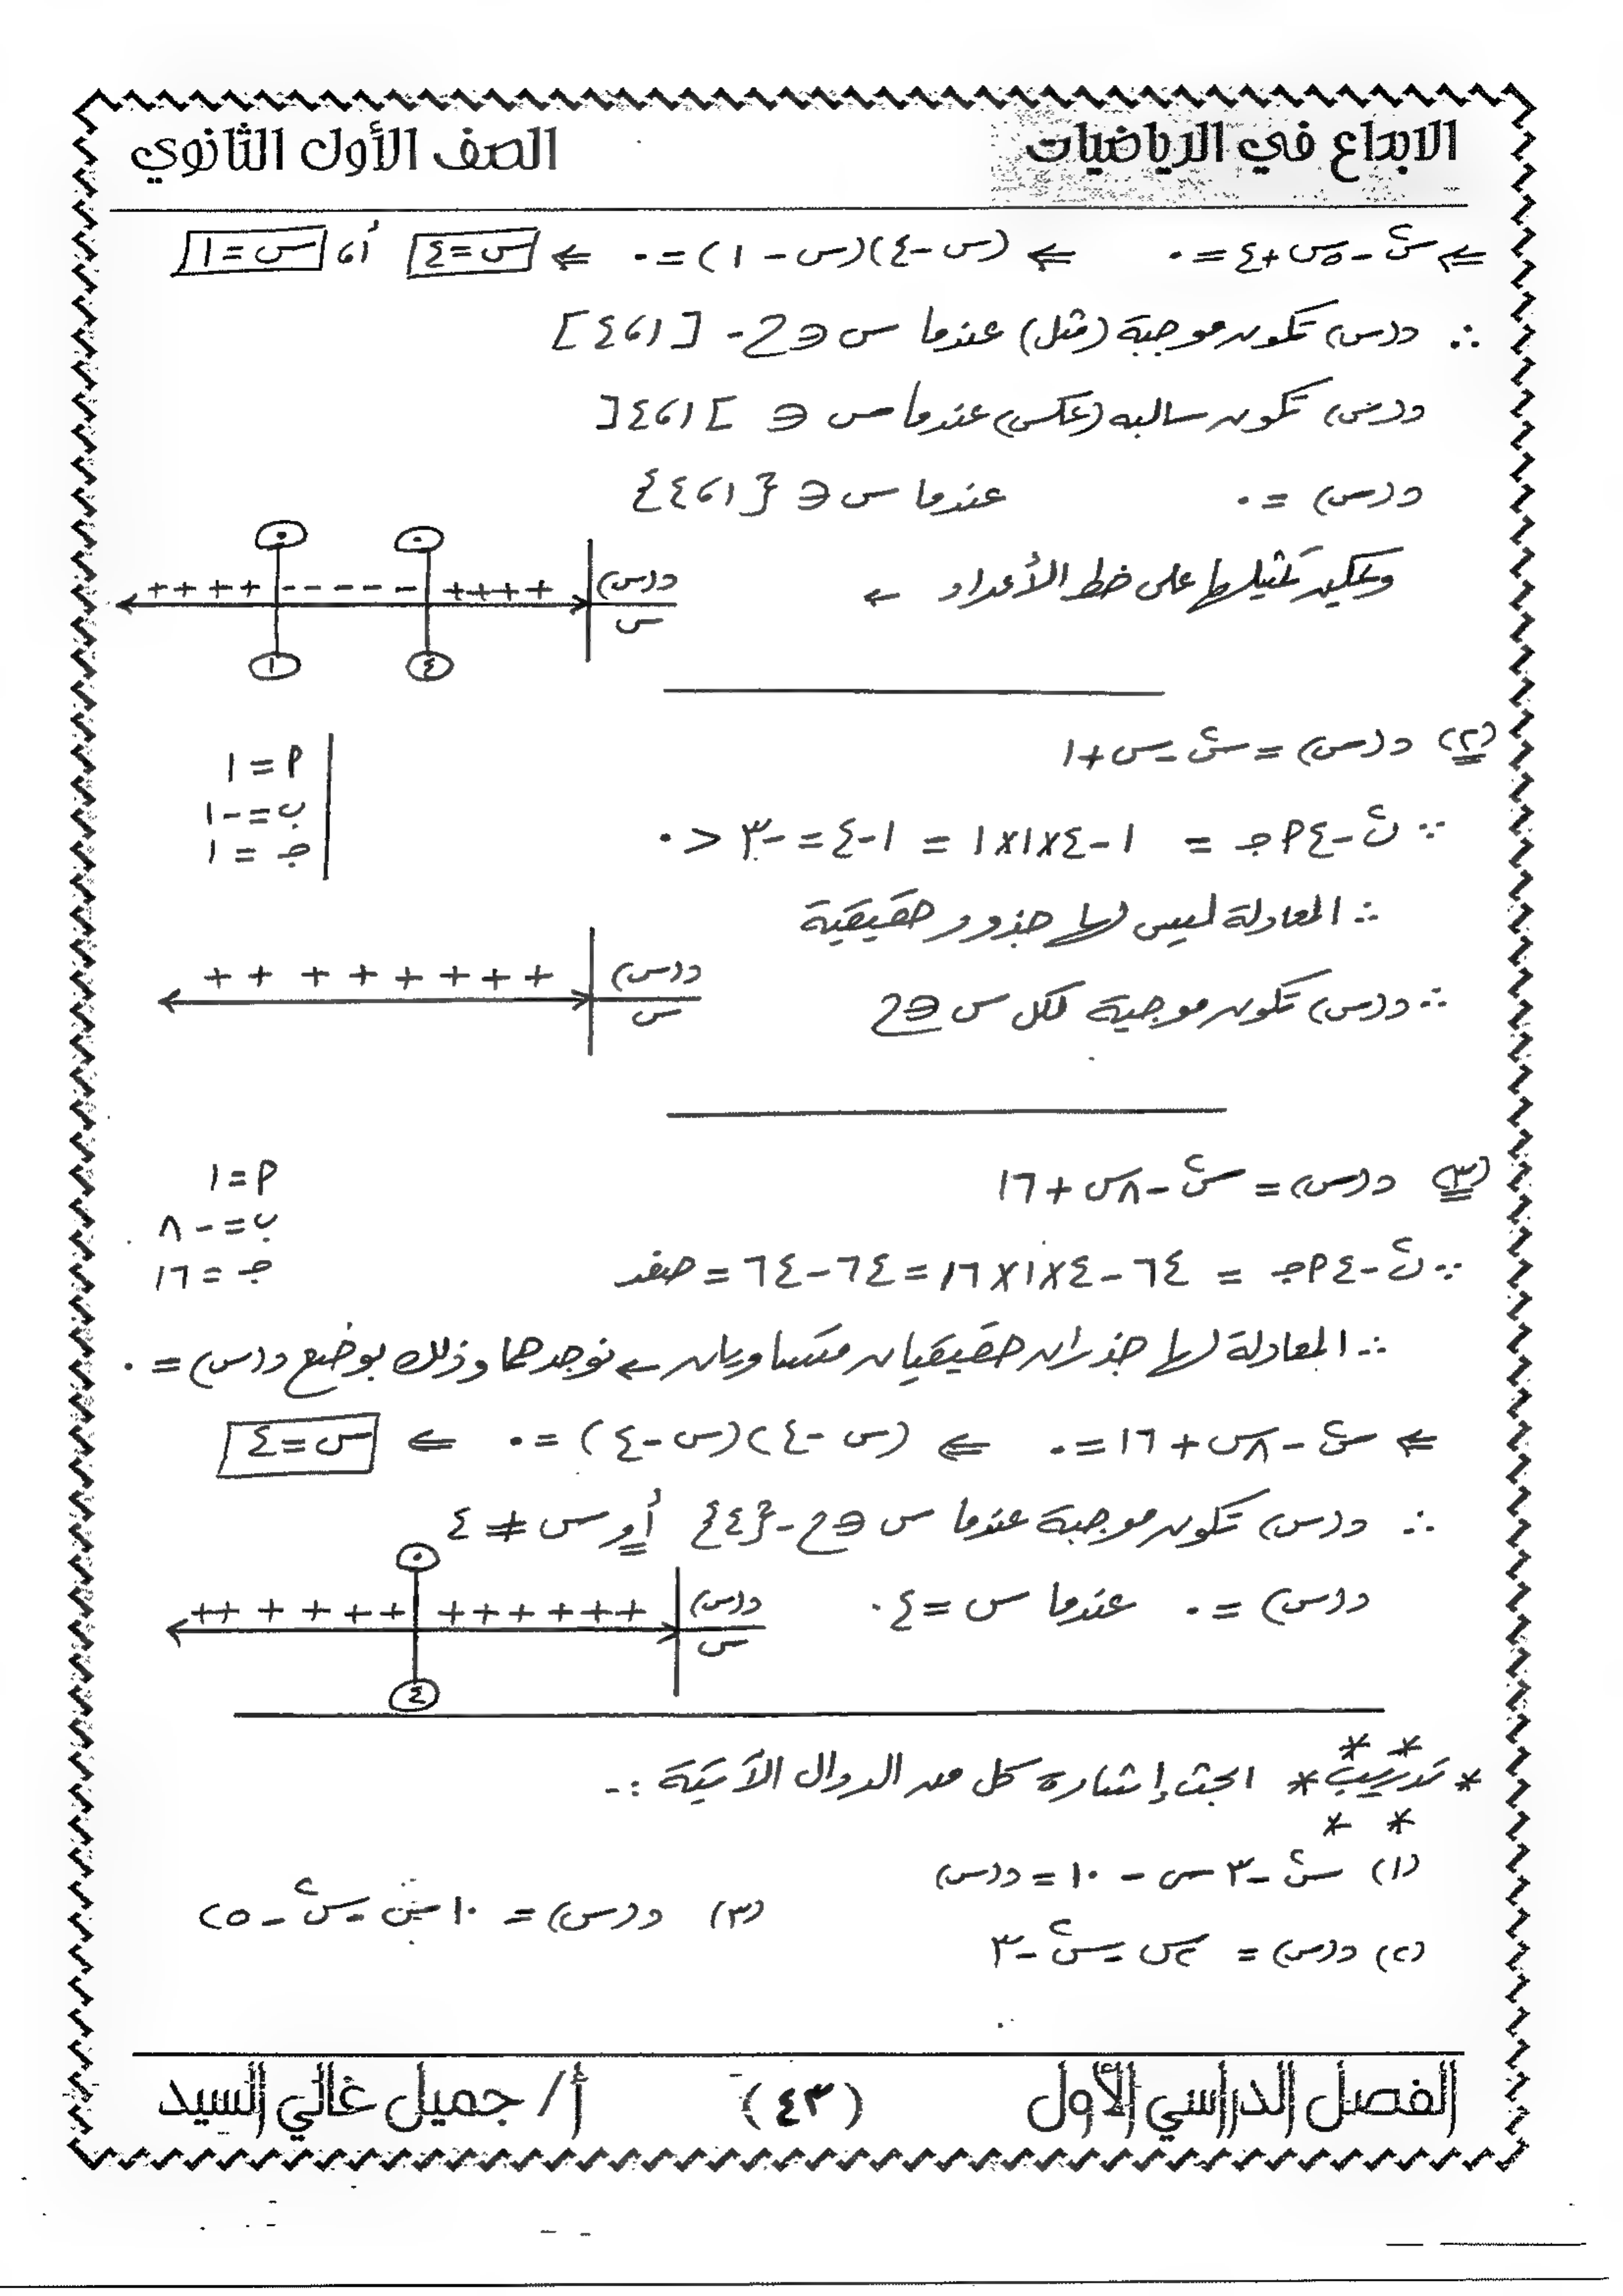 الابداع في الرياضيات
الصف الأول الثانوي
⇐ س٢ - ٥س + ٤ = ٠ ⇐ (س - ٤)(س - ١) = ٠ ⇐ س = ٤ أ، س = ١
∴ د(س) تكون موجبة (مثل) عندما س ∈ ح - [١، ٤]
د(س) تكون سالبه (عكس) عندما س ∈ ]١، ٤[
د(س) = ٠ عندما س ∈ {١، ٤}
ويمكن تمثيلها على خط الأعداد ←
د(س) ++++ ٠ ----- ٠ ++++
س ٤ ١
(٢) د(س) = س٢ - س + ١
∵ ب٢ - ٤ أ جـ = ١ - ٤×١×١ = ١ - ٤ = -٣ < ٠
أ = ١
ب = -١
جـ = ١
∴ المعادلة ليس لها جذور حقيقية
∴ د(س) تكون موجبة لكل س ∈ ح
د(س) + + + + + + + +
س
(٣) د(س) = س٢ - ٨س + ١٦
أ = ١
ب = -٨
جـ = ١٦
∵ ب٢ - ٤ أ جـ = ٦٤ - ٤×١×١٦ = ٦٤ - ٦٤ = صفر
∴ المعادلة لها جذران حقيقيان متساويان ← نوجدهما وذلك بوضع د(س) = ٠
⇐ س٢ - ٨س + ١٦ = ٠ ⇐ (س - ٤)(س - ٤) = ٠ ⇐ س = ٤
∴ د(س) تكون موجبة عندما س ∈ ح - {٤} أو س ≠ ٤
د(س) = ٠ عندما س = ٤
د(س) + + + + + + + ٠ + + + + + +
س ٤
* تدريب * ابحث إشارة كل من الدوال الآتية :-
(١) س٢ - ٣س - ١٠ = د(س)
(٢) د(س) = ٢س - س٢ - ٣
(٣) د(س) = ١٠س - س٢ - ٢٥
الفصل الدراسي الأول
(٤٣)
أ/ جميل غالي السيد